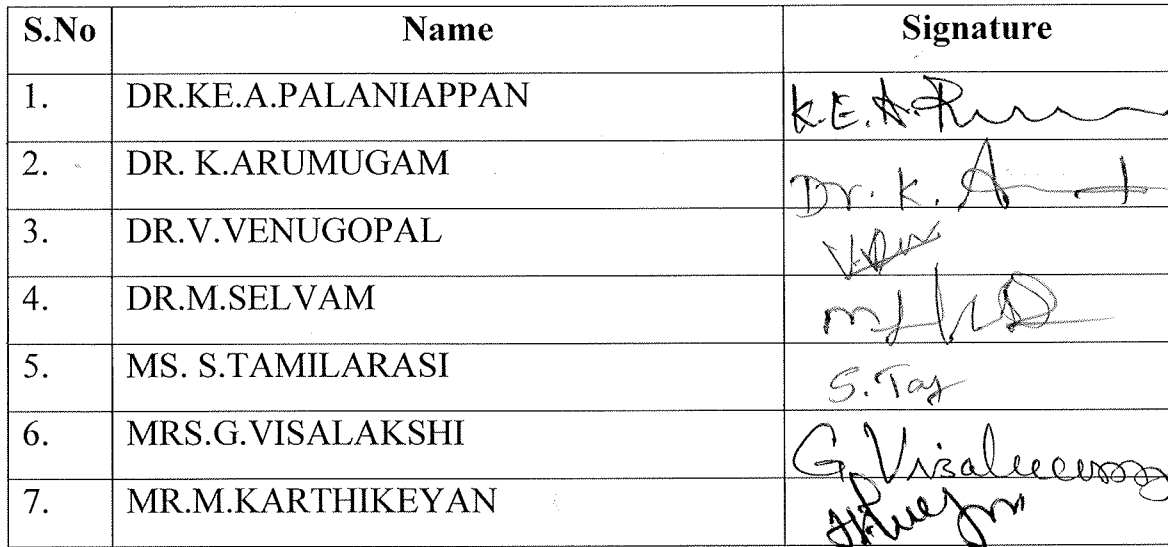 S.No Name Signature
1. DR.KE.A.PALANIAPPAN K.E.A.
2. DR. K.ARUMUGAM Dr. K. A
3. DR.V.VENUGOPAL
4. DR.M.SELVAM
5. MS. S.TAMILARASI S.
6. MRS.G.VISALAKSHI G.
7. MR.M.KARTHIKEYAN